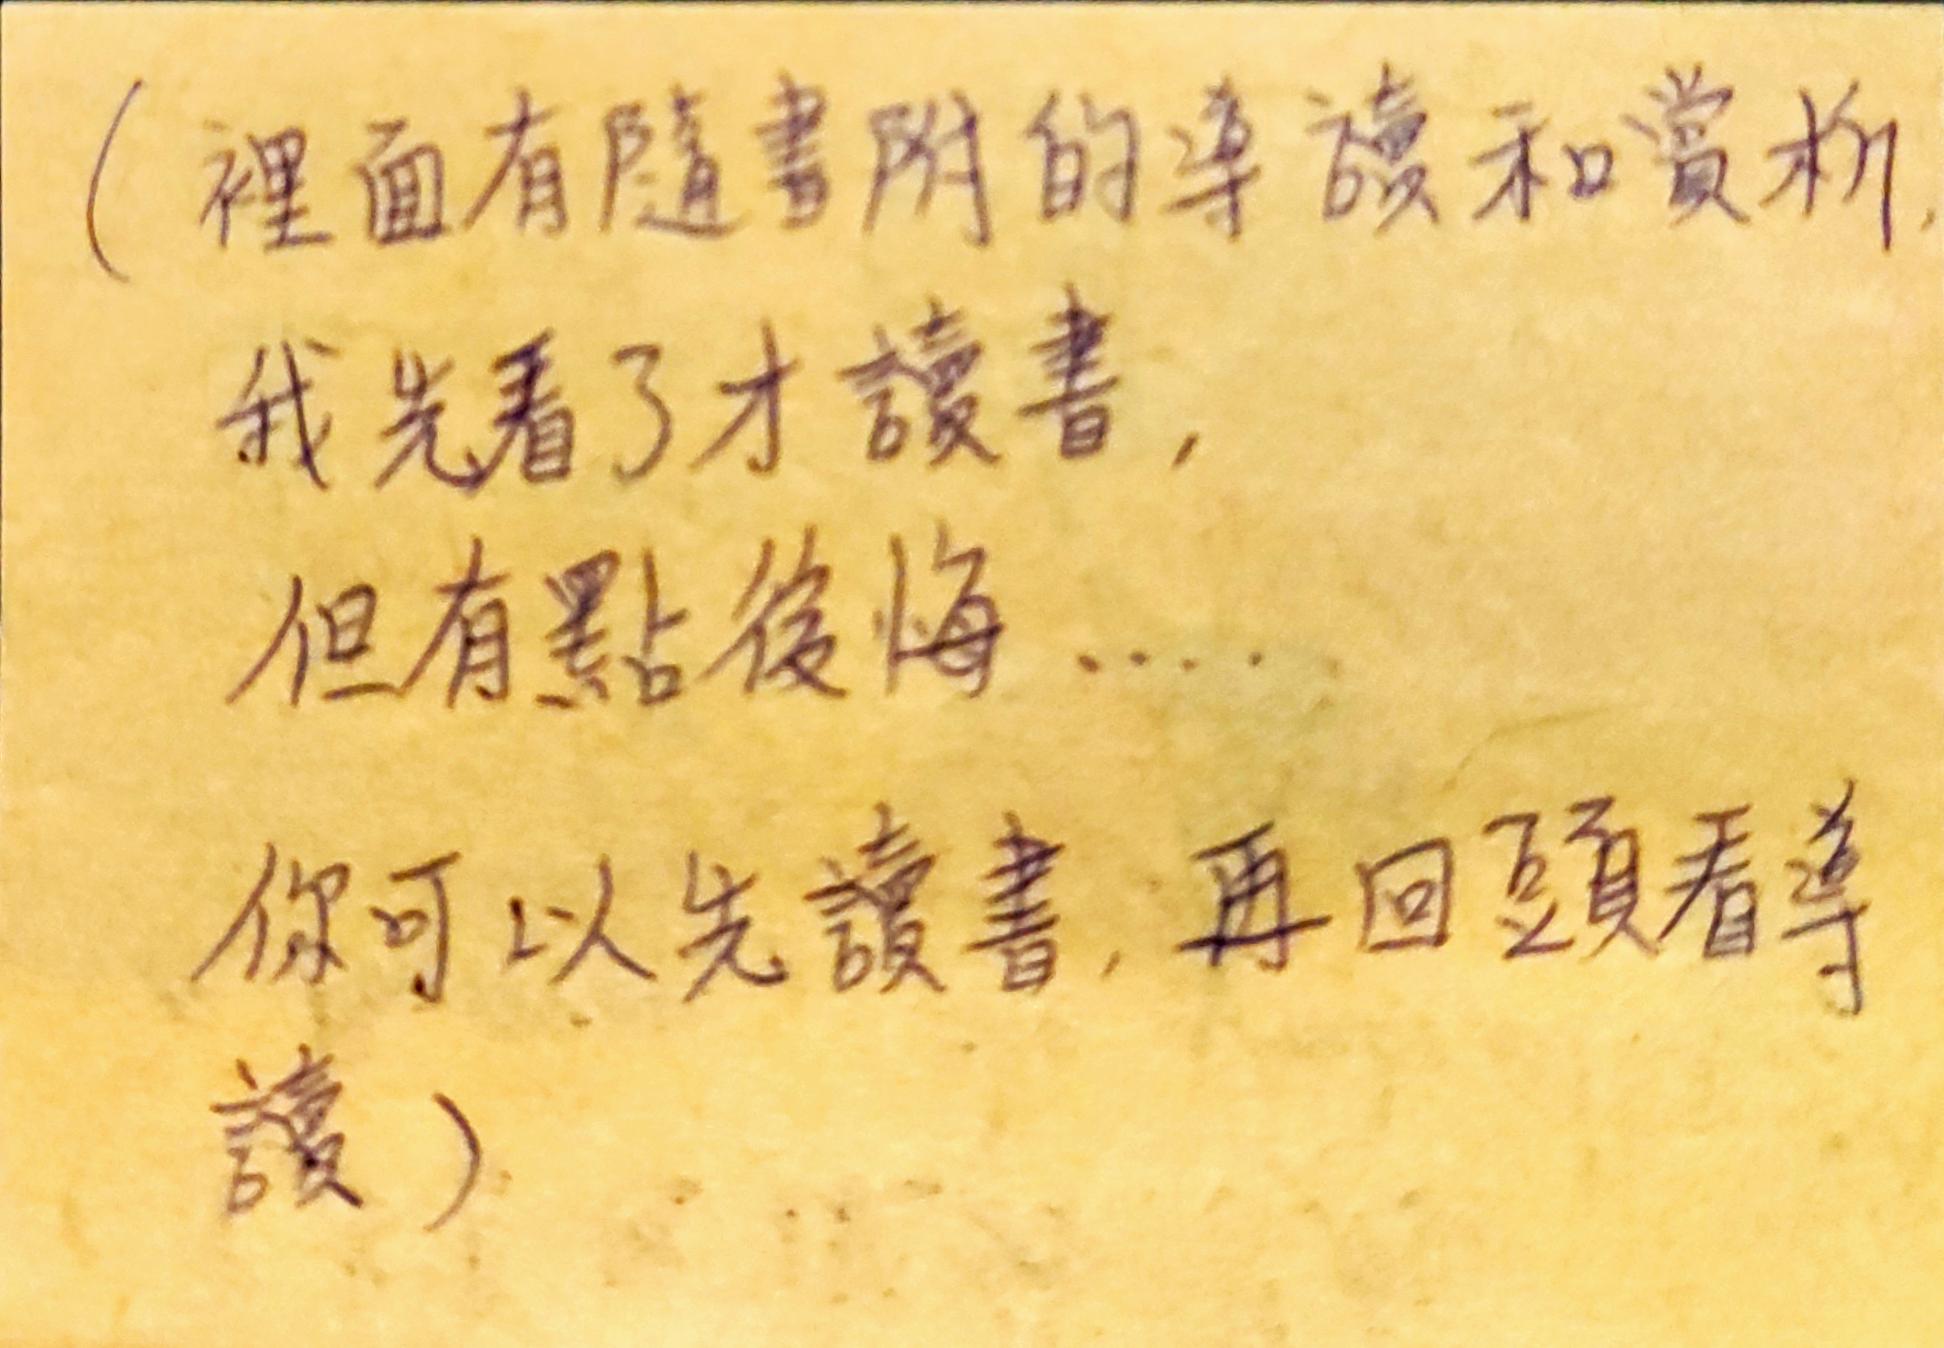 (裡面有隨書附的導讀和賞析,
我先看了才讀書,
但有點後悔.....
你可以先讀書,再回頭看導
讀)